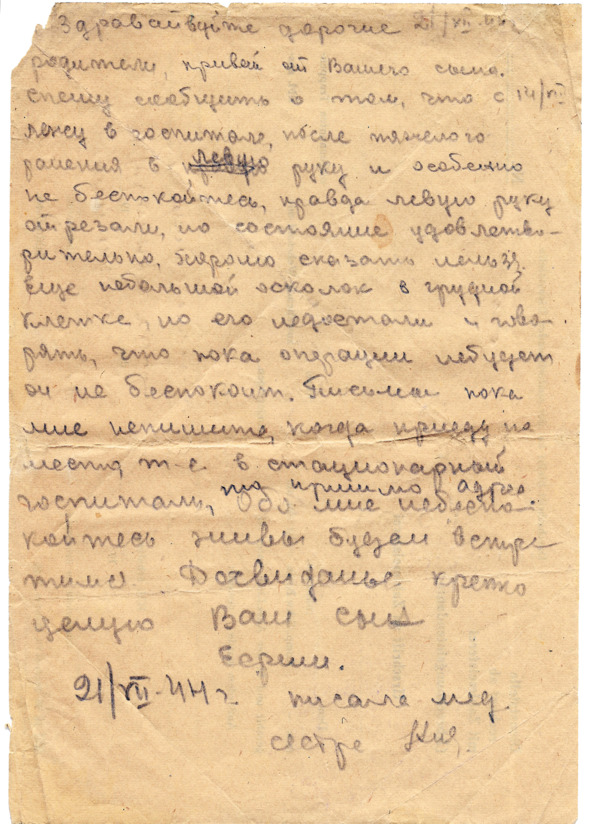 Здравайвуйте дорогие 21/XII-44г
родители, привей от Вашего сына.
спешу сообщить о том, что с 14/XII
лежу в госпитале, после тяжелого
ранения в левую руку и особенно
не беспокойтесь, правда левую руку
отрезали, но состояние удовлетво-
рительно, хорошо сказать нельзя.
Еще небольшой осколок в грудной
клетке, но его недостали и гово-
рять, что пока операции небудет
он не беспокоит. Письма пока
мне непишите, когда приеду на
место, т-е в стационарный
госпиталь, то пришлю адрес.
Обо мне небеспо-
койтесь живы будем встре
тимся Досвиданье крепко
целую Ваш сын
Ефим.
21/XII-44г писала мед
сестре